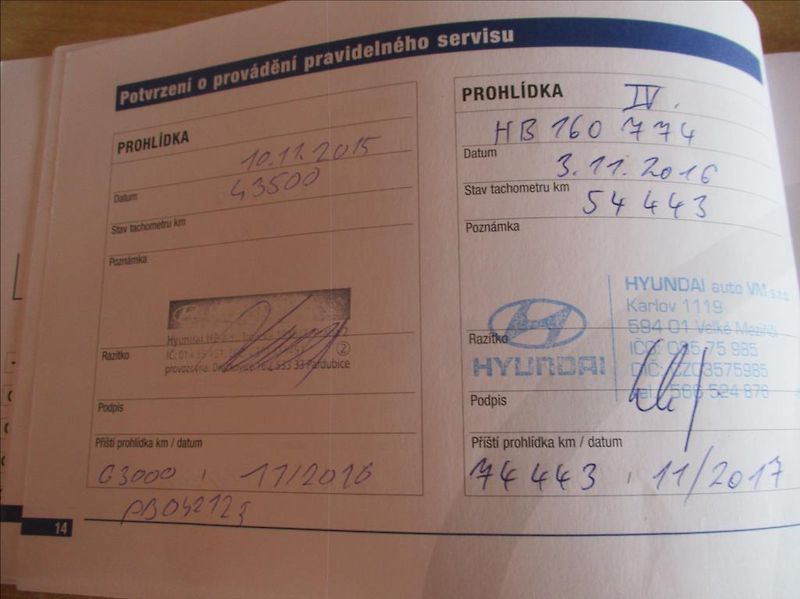 Potvrzení o provádění pravidelného servisu
PROHLÍDKA
10.11.2015
Datum
43500
Stav tachometru km
Poznámka
Razítko
provozovna: 533 33 Pardubice
2
Podpis
Příští prohlídka km / datum
63000 , 11/2016
14
PROHLÍDKA IV.
HB 160 774
Datum
3.11.2016
Stav tachometru km
54 443
Poznámka
HYUNDAI auto VM s.r.o.
Karlov 1119
594 01 Velké Meziříčí
Razítko
HYUNDAI
IČO: 035 75 985
DIČ: CZ03575985
tel.: 566 524 876
Podpis
Příští prohlídka km / datum
74 443 , 11/2017